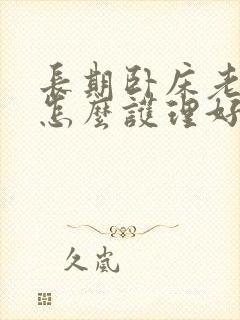 長期卧床老
怎麼護理好
久嵐